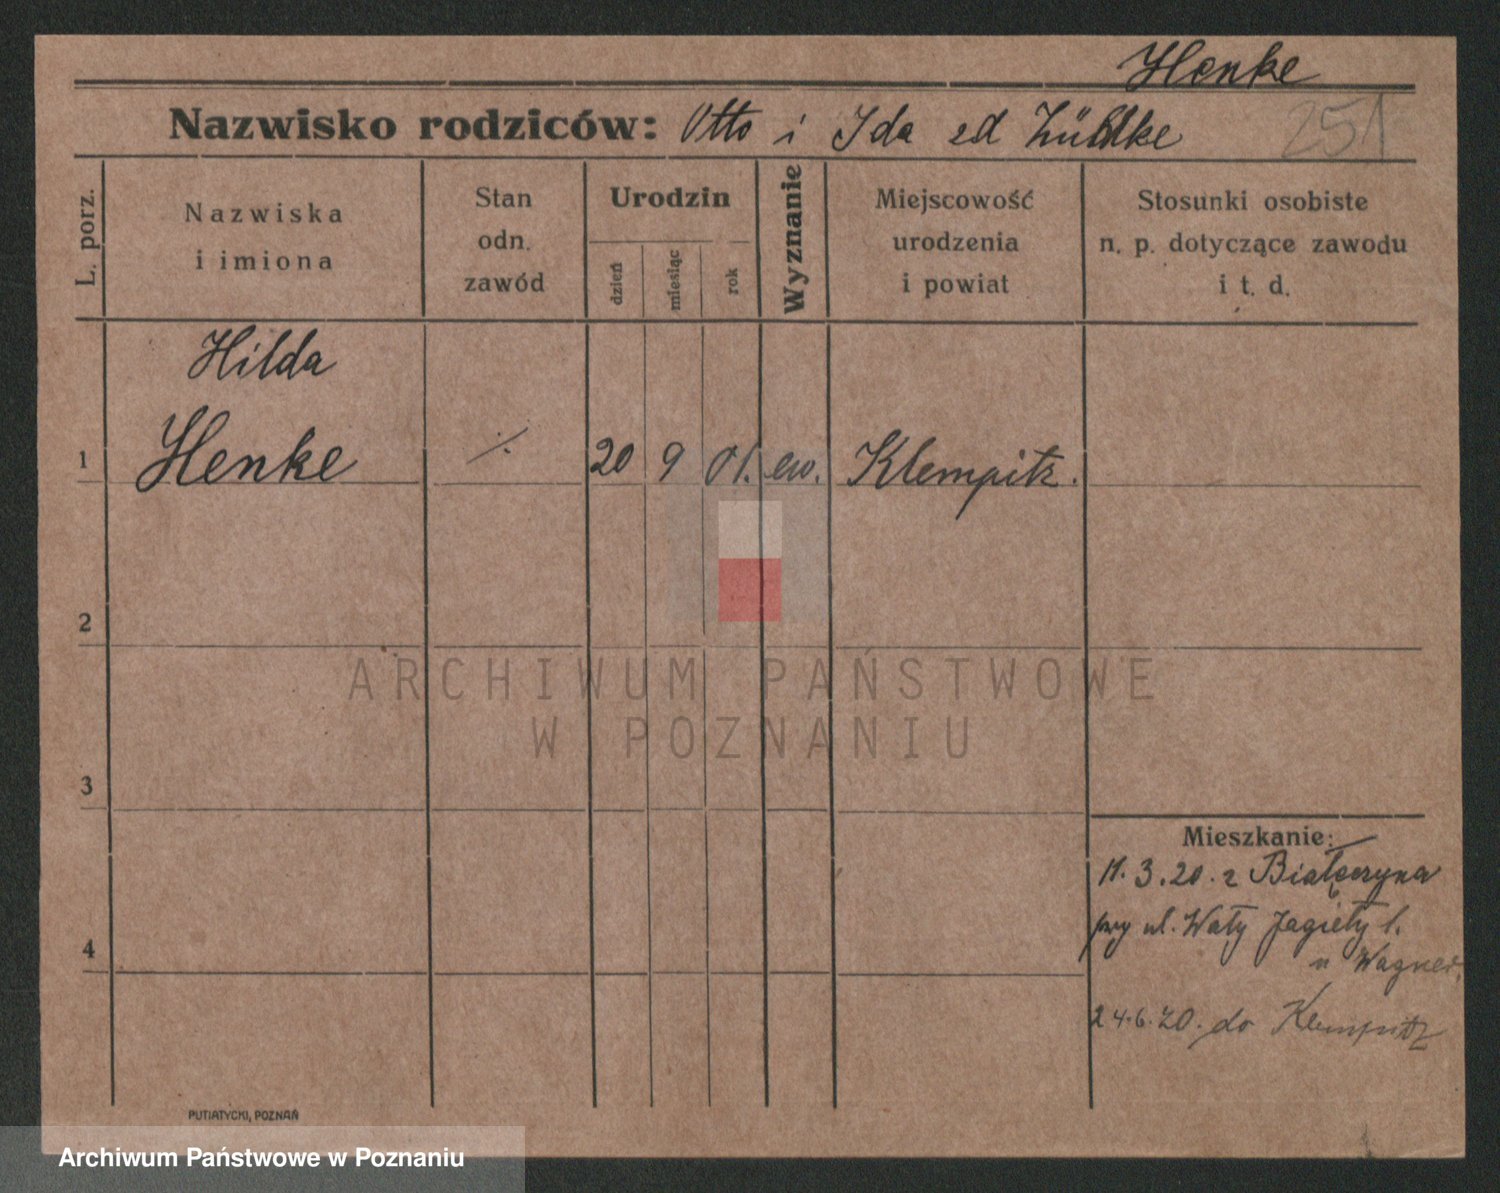 Henke
Nazwisko rodziców: Otto i Ida zd
251
L. porz.
Nazwiska
i imiona
Stan
odn.
zawód
Urodzin
dzień
miesiąc
rok
Wyznanie
Miejscowość
urodzenia
i powiat
Stosunki osobiste
n. p. dotyczące zawodu
i t. d.
Hilda
1 Henke ·/. 20 9 01. ew. Klempitz.
2
3
4
Mieszkanie:
11.3.20. z
przy ul. Wały Jagiełły 1.
u Wagner.
24.6.20. do Klempitz
PUTIATYCKI, POZNAŃ
ARCHIWUM PAŃSTWOWE
W POZNANIU
Archiwum Państwowe w Poznaniu